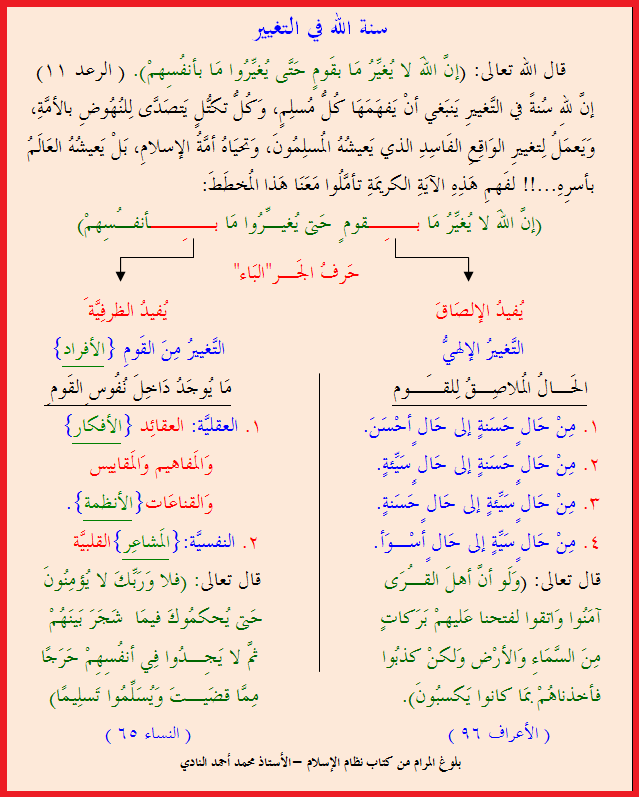 سنة الله في التغيير
قال الله تعالى: (إنَّ اللهَ لا يُغيِّرُ مَا بقَومٍ حَتَّى يُغيِّرُوا مَا بأنفُسِهِمْ). ( الرعد ١١)
إنَّ للهِ سُنةً في التَّغييرِ يَنبَغي أنْ يَفهَمَهَا كلُّ مُسلِمٍ، وَكلُّ تكتُّلٍ يَتصَدَّى لِلنُهُوضِ بالأمَّةِ،
وَيَعمَلُ لِتغييرِ الوَاقِعِ الفَاسِدِ الذي يَعيشُهُ المُسلِمُونَ، وَتحيَاهُ أمَّةُ الإسلامِ، بَلْ يَعيشُهُ العَالَمُ
بأسرِهِ...!! لفَهمِ هَذِهِ الآيَةِ الكريمَةِ تأمَّلُوا مَعَنَا هَذا المُخطَطَ:
(إنَّ اللهَ لا يُغيِّرُ مَا بِـــقومٍ حَتى يُغيـِّـرُوا مَا بِـــــأنفـُـسِهمْ)
حَرفُ الجَـــر"البَاء"
يُفيدُ الإلصَاقَ
التَّغييرُ الإلهيُّ
الحَــالُ المُلاصِــقُ لِلقــَــوم
١. مِنْ حَالٍ حَسَنةٍ إلى حَالٍ أحْسَنَ.
٢. مِنْ حَالٍ حَسَنةٍ إلى حَالٍ سَيِّئةٍ.
٣. مِنْ حَالٍ سَيِّئةٍ إلى حَالٍ حَسَنةٍ.
٤. مِنْ حَالٍ سَيِّةٍ إلى حَالٍ أسْــوَأ.
قال تعالى: (وَلَو أنَّ أهلَ القــُـرَى
آمَنُوا وَاتقوا لفتحنا عَليهمْ بَرَكاتٍ
مِنَ السَّمَاءِ وَالأرْضِ وَلكنْ كذبُوا
فأخذناهُمْ بمَا كانوا يَكسبُونَ).
( الأعراف ٩٦ )
يُفيدُ الظرفِيَّةَ
التَّغييرُ مِنَ القَومِ {الأفراد}
مَا يُوجَدُ دَاخِلَ نُفُوسِ القَومِ
١. العقليَّة: العقائِد {الأفكار}
وَالمفاهيم وَالمَقاييس
وَالقناعَات{الأنظمة}.
٢. النفسيَّة: {المَشاعِر} القلبيَّة
قال تعالى: (فلا وَرَبِّكَ لا يُؤمِنُونَ
حَتى يُحكمُوكَ فيمَا شَجَرَ بَينَهُمْ
ثمَّ لا يَجـِـدُوا فِي أنفُسِهمْ حَرَجًا
مِمَّا قضَيــتَ وَيُسَلِّمُوا تَسلِيمًا)
( النساء ٦٥ )
بلوغ المرام من كتاب نظام الإسلام – الأستاذ محمد أحمد النادي